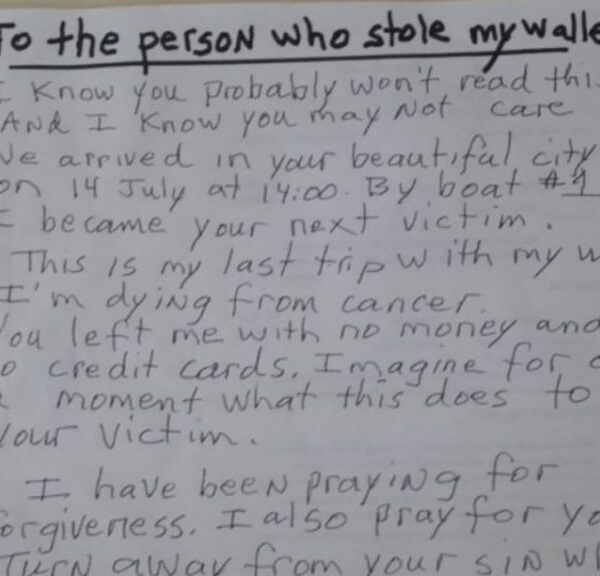 To the person who stole my walle
I Know you probably won't read thi
And I Know you may Not care
We arrived in your beautiful city
on 14 July at 14:00. By boat #1
I became your next victim.
This is my last trip with my w
I'm dying from cancer.
You left me with no money and
o credit cards. Imagine for
moment what this does to
Your victim.
I have been praying for
orgiveness. I also pray for yo
Turn away from your sin w